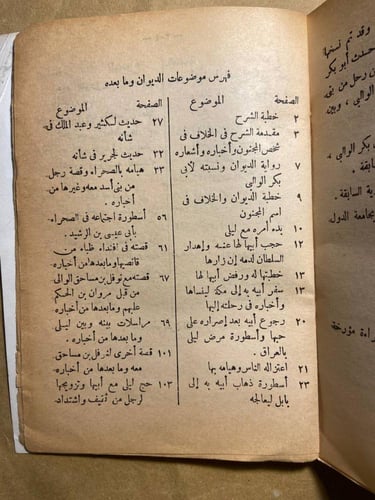 فهرس موضوعات الديوان وما بعده
الصفحة الموضوع
٢ خطبة الشرح
٣ مقدمة الشرح فى الخلاف فى
شخص المجنون وأخباره وأشعاره
٧ رواية الديوان ونسبته لأبى
بكر الوالبى
٩ خطبة الديوان والخلاف فى
اسم المجنون
١٠ بدء أمره مع ليلى
١٢ حجب أبيها لها عنه وإهدار
السلطان لدمه إن زارها
١٣ خطبتها له ورفض أبيها لها
١٣ سفر أبيه به إلى مكة لينساها
وأخباره فى رحلته إليها
٢٠ رجوع أبيه بعد إصراره على
حبها وأسطورة مرض ليلى
بالعراق.
٢١ اعتزاله الناس وهيامه بها
٢٣ أسطورة ذهاب أبيه به إلى
بابل ليعالجه
الصفحة الموضوع
٢٧ حديث لكثير وعبد الملك فى
شأنه
٣٢ حديث لجرير فى شأنه
٣٣ هيامه بالصحراء وقصة رجل
من بنى أسد معه وغيرها من
أخباره.
٥٦ أسطورة اجتماعه فى الصحراء
بأبى عيسى بن الرشيد.
٦١ قصته فى افتداء ظباء من
قانصها وما بعدها من أخباره
٦٧ قصته مع نوفل بن مساحق الوالى
من قبل مروان بن الحكم
عليهم وما بعدها من أخباره
٦٩ مراسلات بينه وبين ليلى
وما بعدها من أخباره.
١٠١ قصة أخرى لنوفل بن مساحق
معه وما بعدها من أخباره.
١٠٣ حج ليلى مع أبيها وتزويجها
لرجل من ثقيف واشتداد
وقد تم نسخها
أبو بكر
الوالبى ، وبين
الوالبى ،
السابقة .
بجامعة الدول
مؤرخة